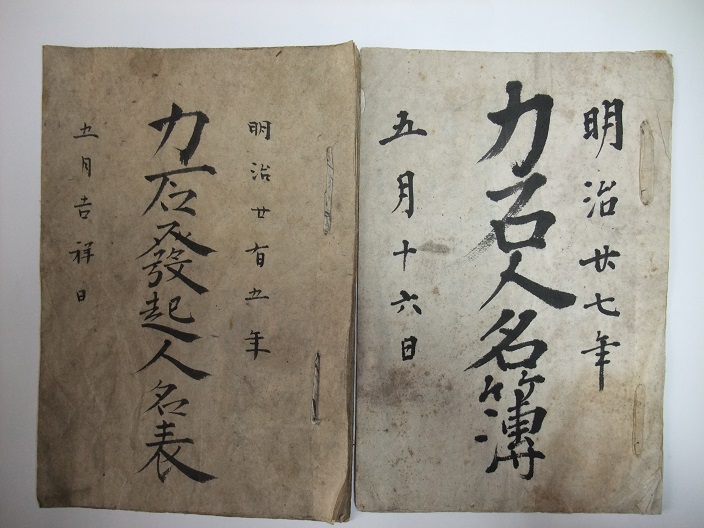 明治廿七年
力石人名簿
五月十六日
明治廿有五年
力石發起人名表
五月吉祥日